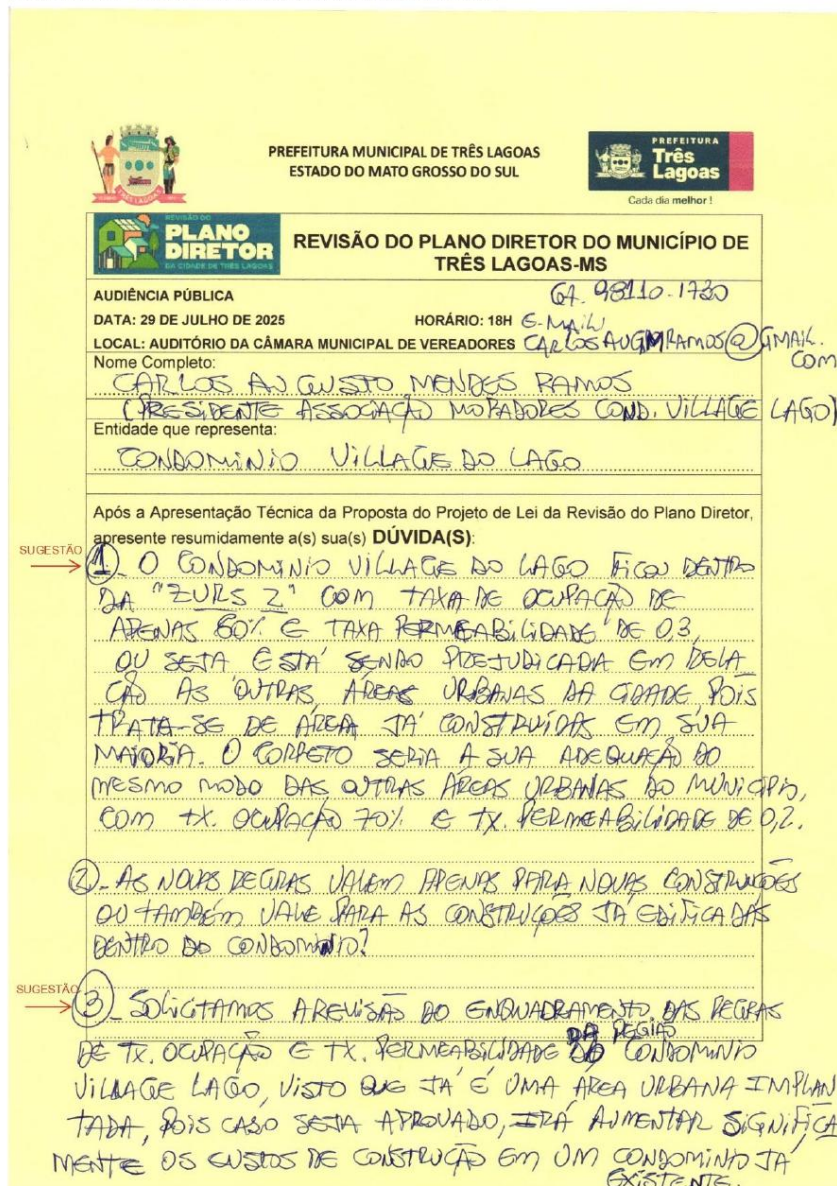 PREFEITURA MUNICIPAL DE TRÊS LAGOAS
ESTADO DO MATO GROSSO DO SUL
TRÊS LAGOAS
PREFEITURA
Três
Lagoas
Cada dia melhor !
REVISÃO DO
PLANO
DIRETOR
DA CIDADE DE TRÊS LAGOAS
REVISÃO DO PLANO DIRETOR DO MUNICÍPIO DE
TRÊS LAGOAS-MS
AUDIÊNCIA PÚBLICA
67. 98110-1730
DATA: 29 DE JULHO DE 2025 HORÁRIO: 18H E-MAIL
LOCAL: AUDITÓRIO DA CÂMARA MUNICIPAL DE VEREADORES CARLOSAUGMRAMOS@GMAIL.
COM
Nome Completo:
CARLOS AUGUSTO MENDES RAMOS
(PRESIDENTE ASSOCIAÇÃO MORADORES COND. VILLAGE LAGO)
Entidade que representa:
CONDOMINIO VILLAGE DO LAGO
Após a Apresentação Técnica da Proposta do Projeto de Lei da Revisão do Plano Diretor,
apresente resumidamente a(s) sua(s) DÚVIDA(S):
SUGESTÃO
1 - O CONDOMINIO VILLAGE DO LAGO FICOU DENTRO
DA "ZURS 2" COM TAXA DE OCUPAÇÃO DE
APENAS 60% E TAXA PERMEABILIDADE DE 0,3,
OU SEJA ESTÁ SENDO PREJUDICADA EM RELA
ÇÃO AS OUTRAS ÁREAS URBANAS DA CIDADE, POIS
TRATA-SE DE ÁREA JÁ CONSTRUÍDAS EM SUA
MAIORIA. O CORRETO SERIA A SUA ADEQUAÇÃO DO
MESMO MODO DAS OUTRAS ÁREAS URBANAS DO MUNICIPIO,
COM TX. OCUPAÇÃO 70% E TX. PERMEABILIDADE DE 0,2.
2 - AS NOVAS REGRAS VALEM APENAS PARA NOVAS CONSTRUÇÕES
OU TAMBÉM VALE PARA AS CONSTRUÇÕES JÁ EDIFICADAS
DENTRO DO CONDOMINIO?
SUGESTÃO
3 - SOLICITAMOS A REVISÃO DO ENQUADRAMENTO DAS REGRAS
DE TX. OCUPAÇÃO E TX. PERMEABILIDADE DA REGIÃO DO CONDOMINIO
VILLAGE LAGO, VISTO QUE JÁ É UMA ÁREA URBANA IMPLAN
TADA, POIS CASO SEJA APROVADO, IRÁ AUMENTAR SIGNIFICA
MENTE OS CUSTOS DE CONSTRUÇÃO EM UM CONDOMINIO JÁ
EXISTENTE.